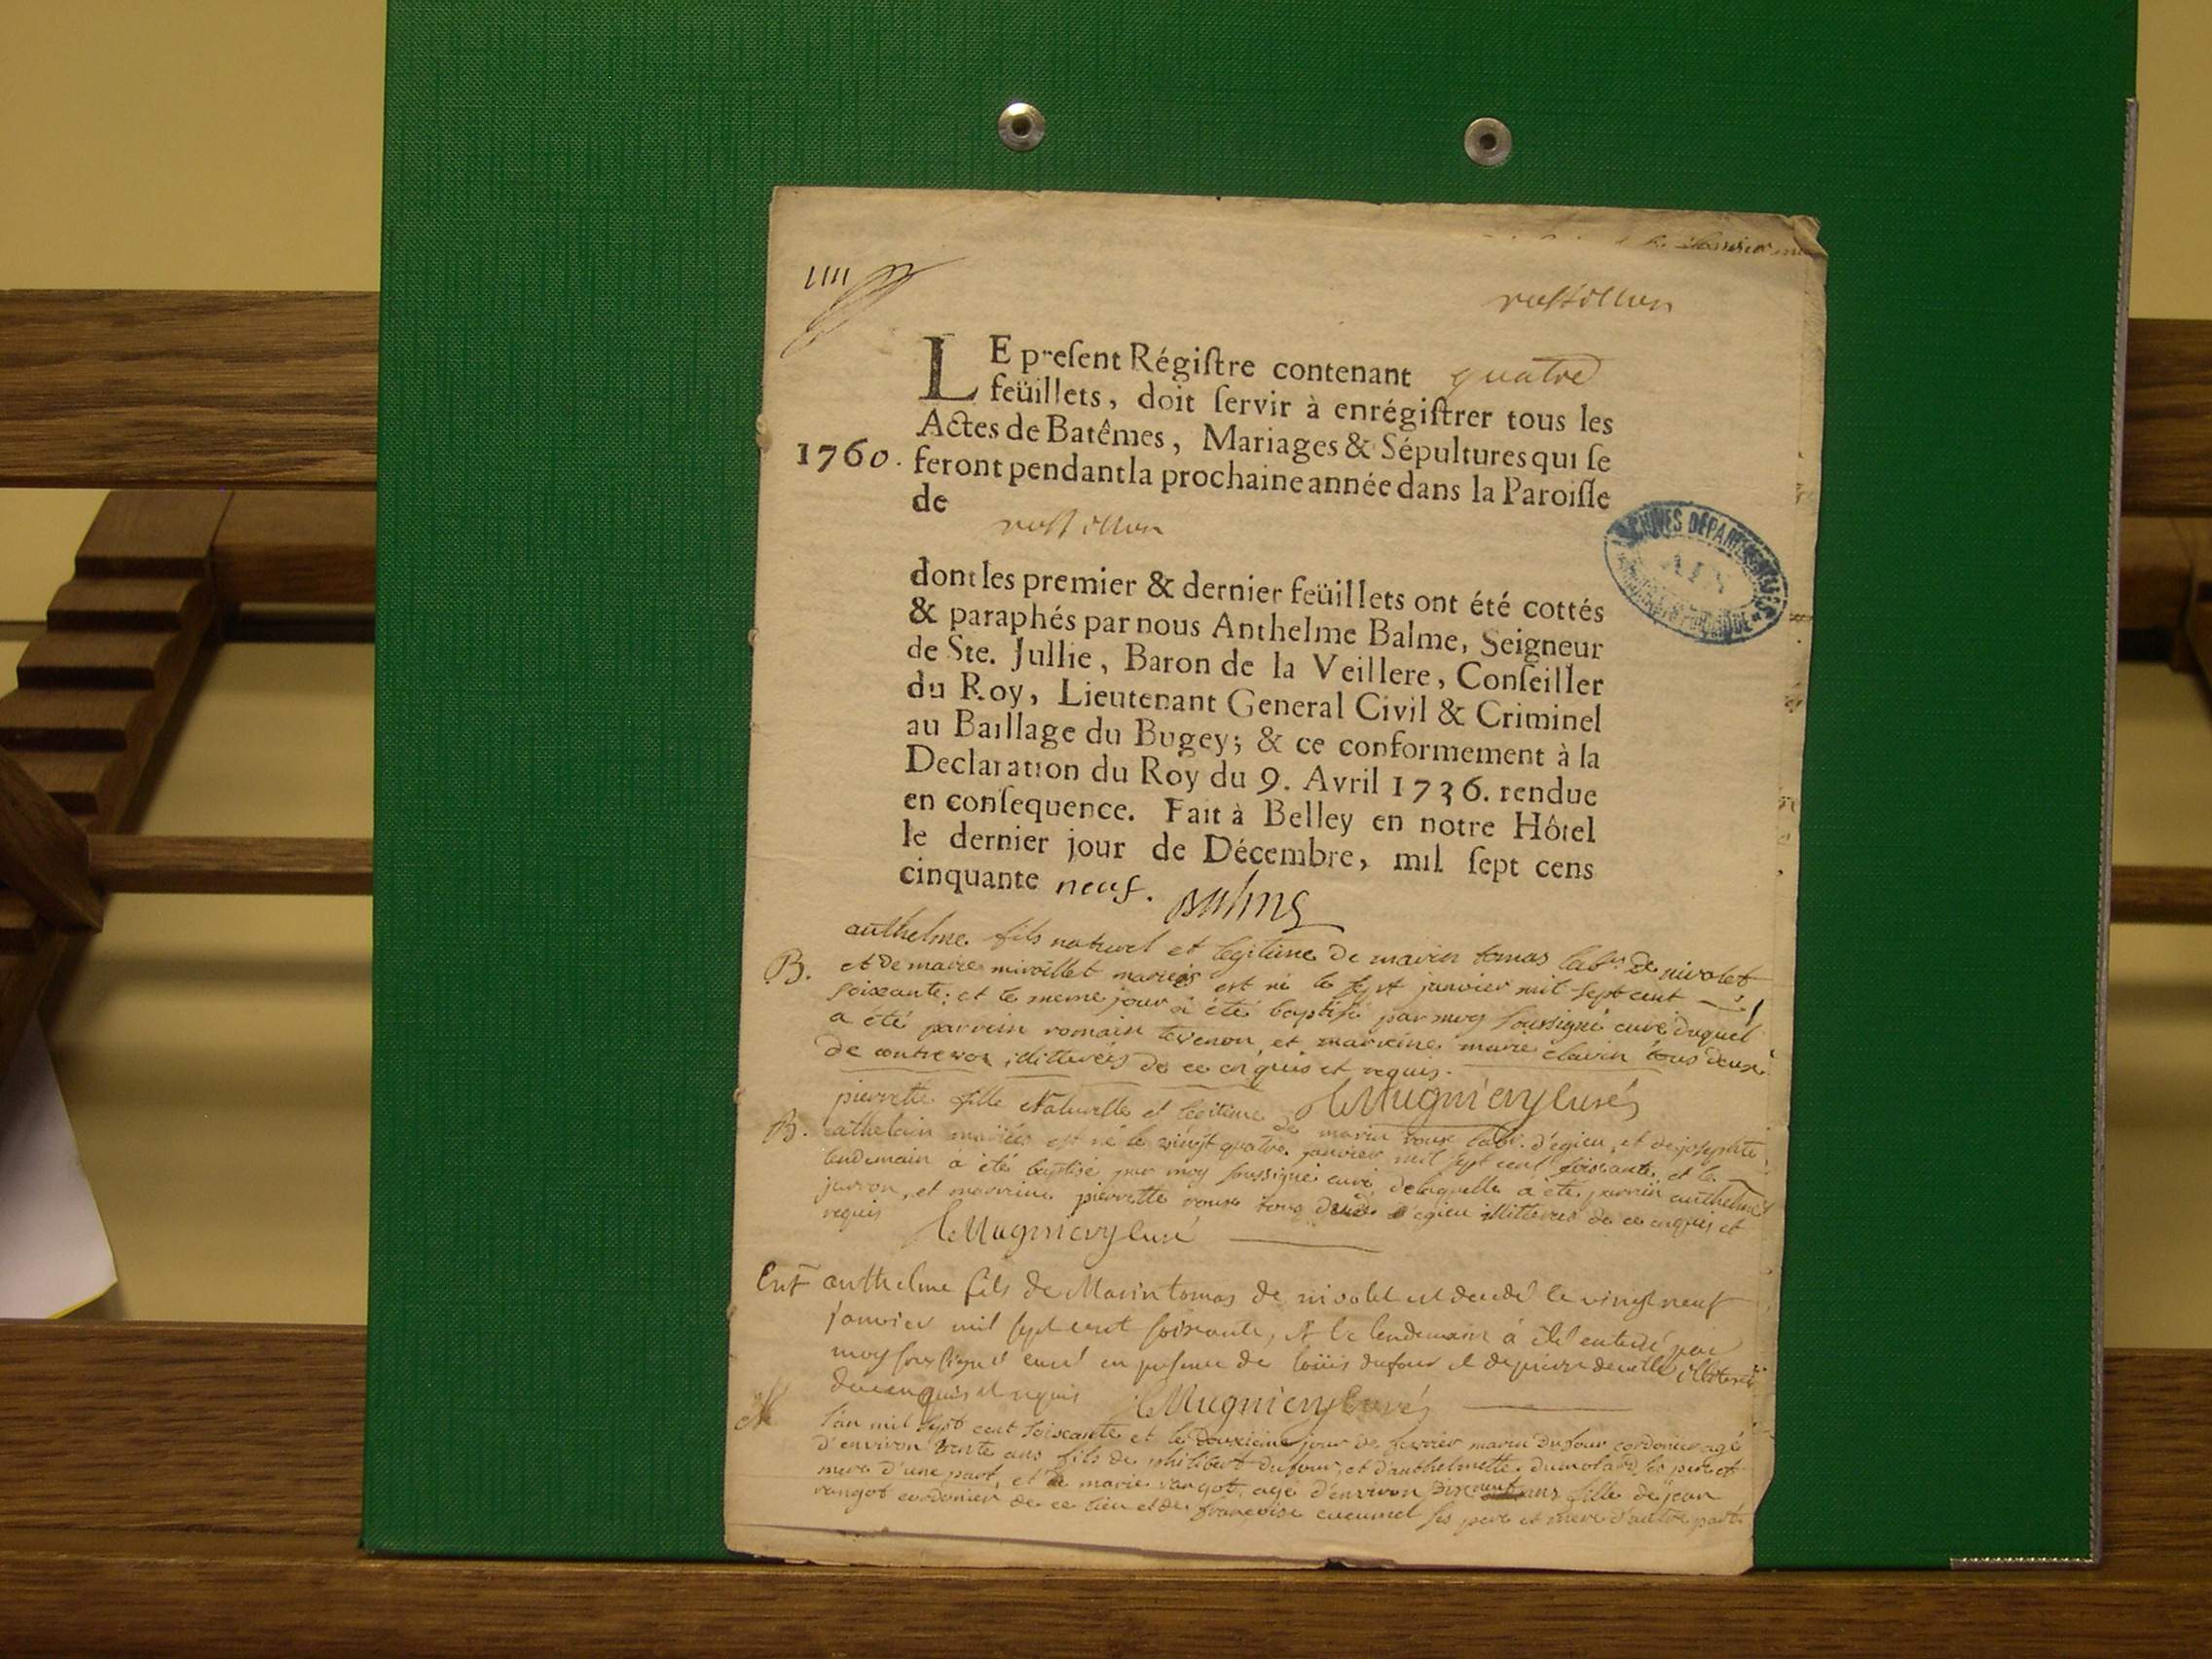 rossillon
LE present Régistre contenant quatre
feüillets, doit servir à enrégistrer tous les
Actes de Batêmes, Mariages & Sépultures qui se
1760. feront pendant la prochaine année dans la Paroisse
de
rossillon
dont les premier & dernier feüillets ont été cottés
& paraphés par nous Anthelme Balme, Seigneur
de Ste. Jullie, Baron de la Veillere, Conseiller
du Roy, Lieutenant General Civil & Criminel
au Baillage du Bugey; & ce conformement à la
Declaration du Roy du 9. Avril 1736. rendue
en consequence. Fait à Belley en notre Hôtel
le dernier jour de Décembre, mil sept cens
cinquante neuf. Balme
ARCHIVES DÉPARTEMENTALES
AIN
anthelme fils naturel et legitime de marin tomas lab.r de nivolet
B. et de marie miroillet mariés est né le sept janvier mil sept cent
soixante; et le meme jour à été baptisé par moy soussigné curé duquel
a été parrein romain tevenon, et marreine marie clavin tous deux
de contrevoz illitterés de ce enquis et requis.
leMugnieryCuré
pierrette fille Naturelle et legitime de marin roux lab.r d'egieu, et de josephte
B. athelain mariés est né le vingt quatre janvier mil sept cent soixante, et le
lendemain à été baptisé par moy soussigné curé, delaquelle à été parrein anthelme
jarron, et marreine pierrette roux tous deux d'egieu illitterés de ce enquis et
requis leMugnieryCuré
Ent anthelme fils de Marin tomas de nivolet est decedé le vingt neuf
janvier mil sept cent soixante, et le lendemain à été enterré par
moy soussigné curé en presence de loüis dufour et de pierre decelle illiterés
de ce enquis et requis leMugnieryCuré
M l'an mil sept cent soixante et le douxieme jour de fevrier marin Dufour cordonier agé
d'environ trente ans fils de philibert Dufour, et d'anthelmette Dumolard ses pere et
mere d'une part, et de marie rangot agé d'environ dixneuf ans fille de jean
rangot cordonier de ce lieu et de françoise cucumel ses pere et mere d'autre part